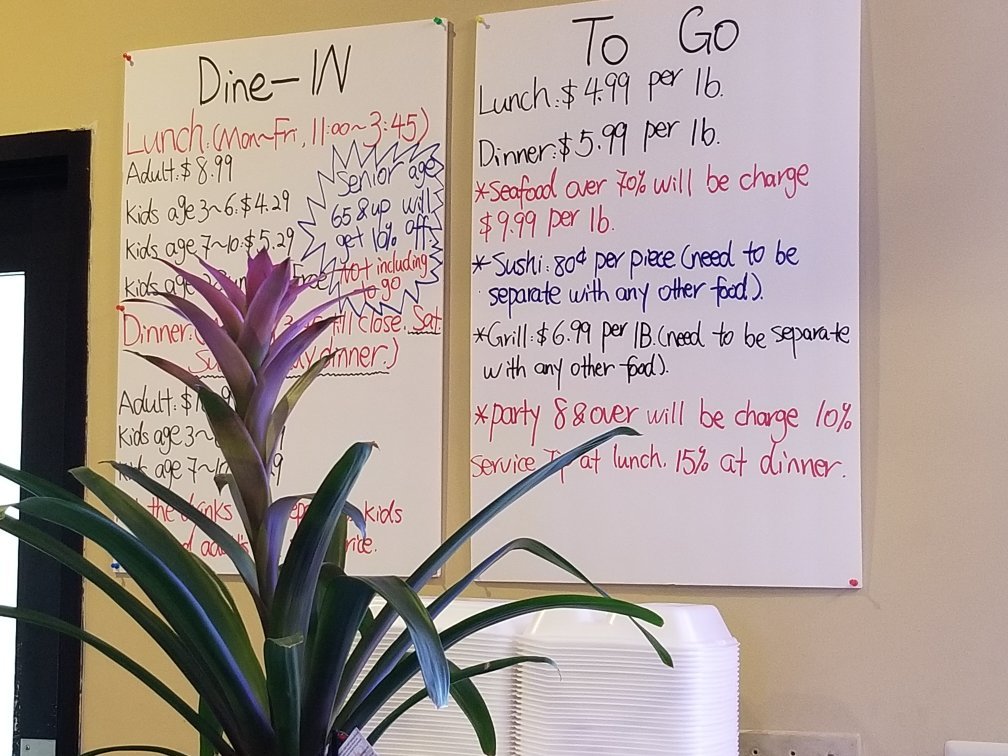 Dine-IN
Lunch:(Mon~Fri, 11:00~3:45)
Adult:$8.99
Kids age3~6:$4.29
Kids age7~10:$5.29
Kids age
Senior age
65&up will
get 10% off.
Not including
to go
Dinner: till close. Sat
dinner.)
Adult:$
Kids age3~
Kids age 7~10
the drinks kids
To Go
Lunch:$4.99 per lb.
Dinner:$5.99 per lb.
*Seafood over 70% will be charge
$9.99 per lb.
*Sushi:80¢ per piece(need to be
separate with any other food).
*Grill:$6.99 per lB.(need to be separate
with any other food).
*party 8&over will be charge 10%
service Tip at lunch. 15% at dinner.